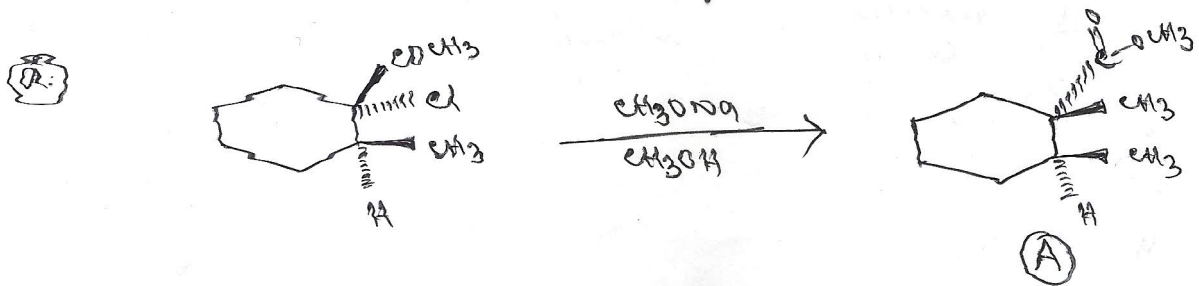 R:
COCH3
Cl
CH3
H
CH3ONa
CH3OH
O
C-OCH3
CH3
CH3
H
A